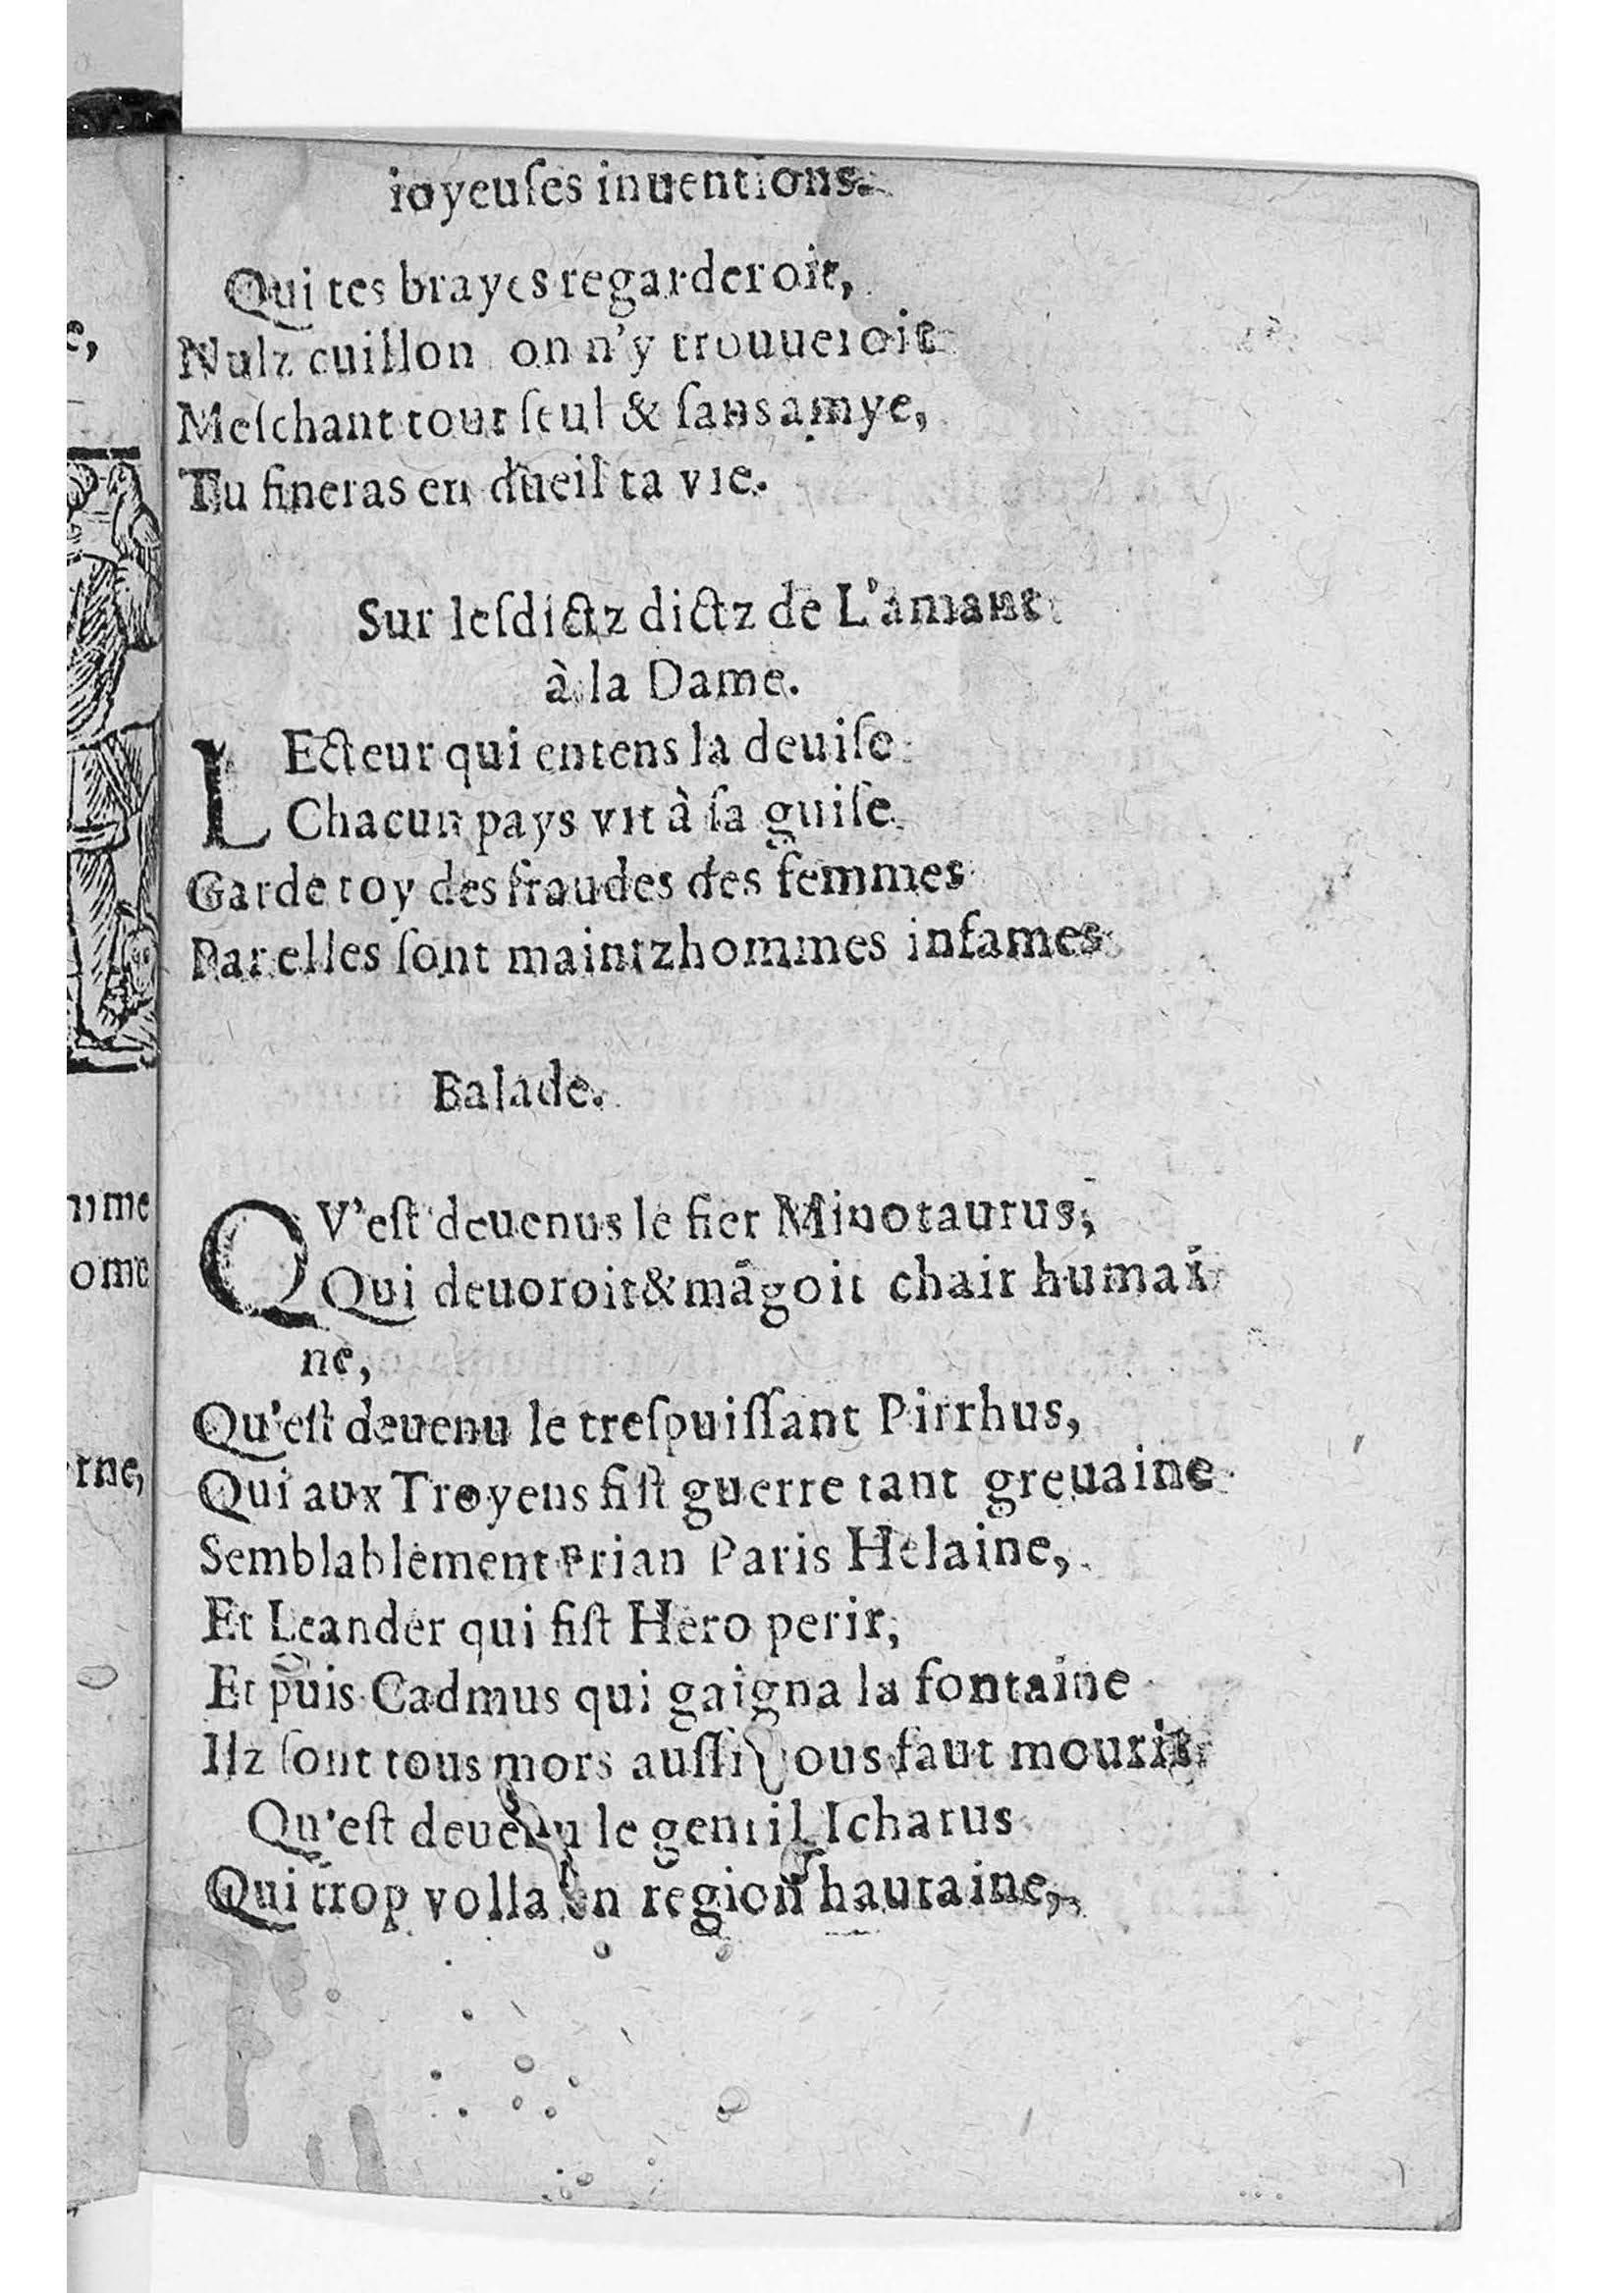 ioyeuſes inuentions.
Qui tes brayes regarderoit,
Nulz cuillon on n'y trouueroit
Meſchant tout ſeul & ſans amye,
Tu fineras en dueil ta vie.
Sur leſdictz dictz de L'amant
à la Dame.
LEcteur qui entens la deuiſe
Chacun pays vit à ſa guiſe
Garde toy des fraudes des femmes
Par elles ſont maintz hommes infames
Balade.
QV'eſt deuenus le fier Minotaurus,
Qui deuoroit & mãgoit chair humai
ne,
Qu'eſt deuenu le treſpuiſſant Pirrhus,
Qui aux Troyens fiſt guerre tant greuaine
Semblablement Prian Paris Helaine,
Et Leander qui fiſt Hero perir,
Et puis Cadmus qui gaigna la fontaine
Ilz ſont tous mors auſſi vous faut mourir
Qu'eſt deuenu le gentil Icharus
Qui trop volla en region hautaine,
e,
mme
ome
rne,